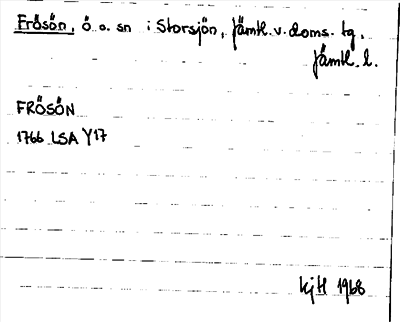 Frösön, ö o. sn i Storsjön, Jämtl. v. doms. tg,
Jämtl. l.
FRÖSÖN
1766 LSA Y17
KjH 1968